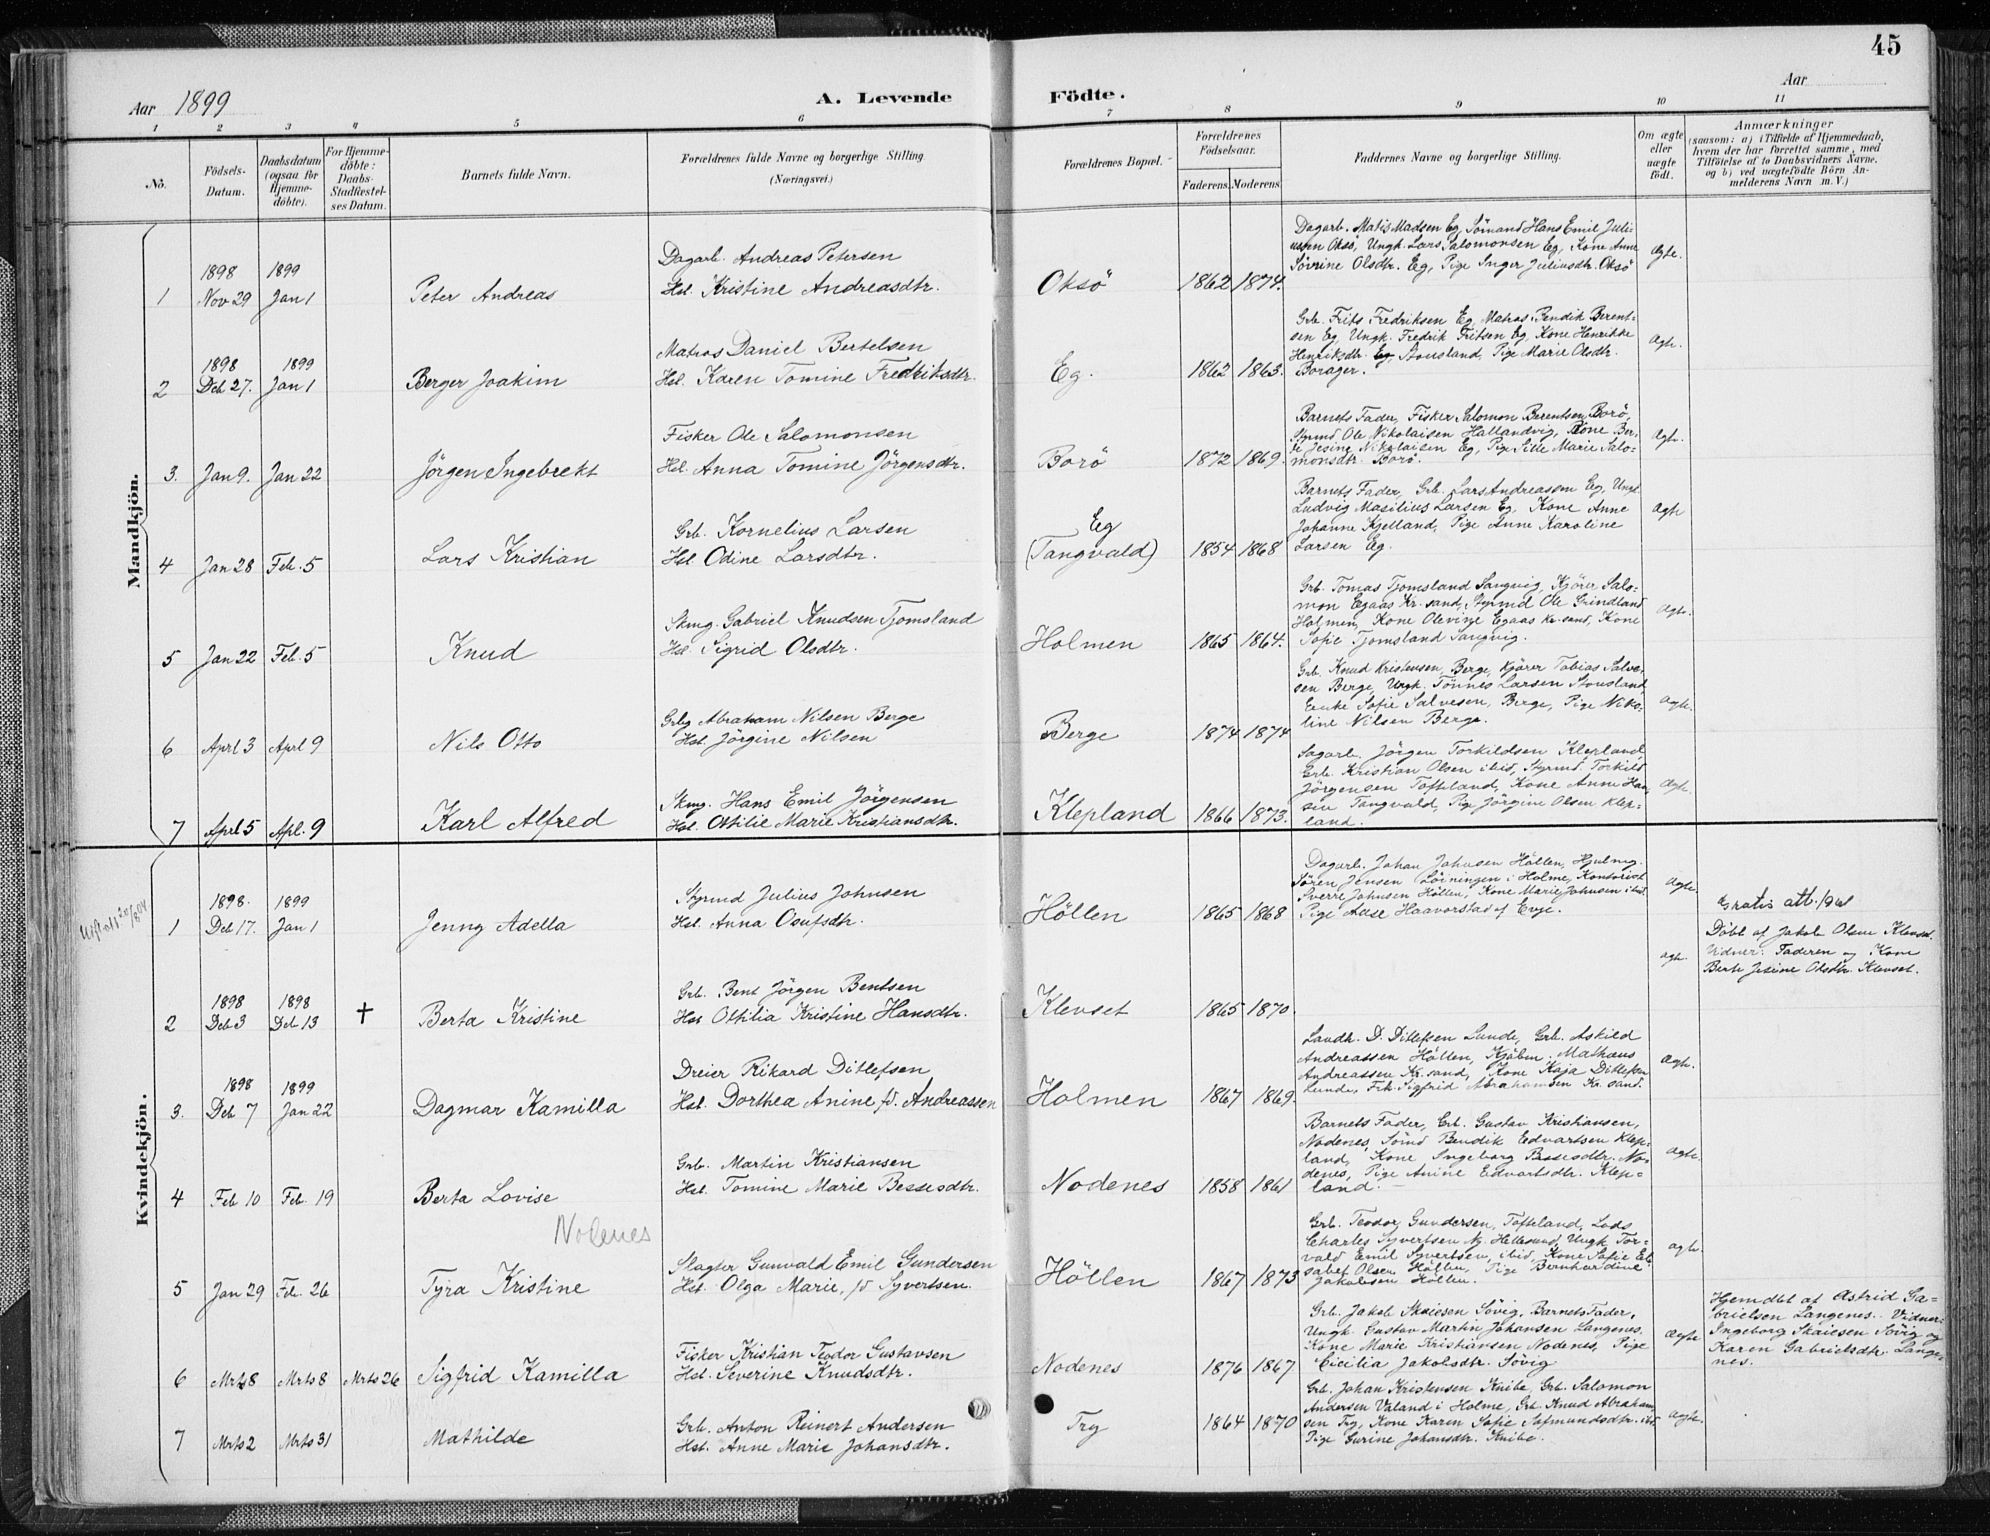 45
Aar 1899
A. Levende Födte.
Aar
1 2 3 4 5 6 7 8 9 10 11
No.
Födsels-Datum.
Daabsdatum (ogsaa for Hjemme-döbte).
For Hjemme-döbte: Daabs-Stadfæstel-ses Datum.
Barnets fulde Navn.
Forældrenes fulde Navne og borgerlige Stilling. (Næringsvei.)
Forældrenes Bopæl.
Forældrenes Födselsaar.
Faderens. Moderens.
Faddernes Navne og borgerlige Stilling.
Om ægte eller uægte födt.
Anmærkninger
(saasom: a) i Tilfælde af Hjemmedaab,
hvem der har forrettet samme, med
Tilföielse af to Daabsvidners Navne.
og b) ved uægtefödte Börn An-
melderens Navn m. V.)
Mandkjön.
1 1898 Nov 29 1899 Jan 1 Peter Andreas
Dagarb. Andreas Petersen
Hst. Kristine Andreasdtr.
Oksö 1862 1874.
Dagarb. Matis Madsen Eg, Sömand Hans Emil Juli-
ussen Oksö, Ungk. Lars Salomonsen Eg, Kone Anne
Sövrine Olsdtr. Eg, Pige Inger Juliusdtr. Oksö
Ægte.
2 1898 Deb 27. 1899 Jan 1 Berger Joakim
Matros Daniel Bertelsen
Hst. Karen Tomine Fredriksdtr.
Eg. 1862 1863.
Grb. Frits Fredriksen Eg, Matros Bendik Berent-
sen Eg, Ungk. Fredrik Fritsen Eg, Kone Henrikke
Henriksdtr. Eg Stousland, Pige Marie Olsdtr.
Borøger.
Ægte.
3. Jan 9. Jan 22 Jörgen Ingebrekt
Fisker Ole Salomonsen
Hst. Anna Tomine Jörgensdtr.
Borö 1872 1869.
Barnets Fader, Fisker Salomon Berentsen Borö,
Styrmd Ole Nikolaisen Hallandvig, Kone Ber-
te Jesine Nikolaisen Eg, Pige Sille Marie Salo-
monsdtr. Borö.
Ægte.
4 Jan 28 Feb. 5 Lars Kristian
Grb. Kornelius Larsen
Hst. Odine Larsdtr.
Eg
(Tangvald) 1854 1868
Barnets Fader, Grb. Lars Andreasen Eg, Ungk
Ludvig Masilius Larsen Eg, Kone Anne
Johanne Kjelland, Pige Anne Karoline
Larsen Eg.
Ægte
5 Jan 22 Feb. 5 Knud
Skmg. Gabriel Knudsen Tjomsland
Hst. Sigrid Olsdtr.
Holmen 1865 1864.
Grb. Tomas Tjomsland Sangvig, Kjörer Salo-
mon Egaas Kr.sand, Styrmd Ole Grindland
Holmen, Kone Olevine Egaas Kr.sand, Kone
Sofie Tjomsland Sangvig.
Ægte.
6 Aprl 3 Aprl 9 Nils Otto
Grbg Abraham Nilsen Berge
Hst. Jörgine Nilsen
Berge 1874 1874
Grb. Knud Kristensen, Berge, Kjörer Tobias Salve-
sen Berge, Ungk. Tönnes Larsen Stousland,
Enke Sofie Salvesen, Berge, Pige Niko-
line Nilsen Berge.
Ægte.
7 Aprl 5 Apl. 9 Karl Alfred
Skmg. Hans Emil Jörgensen
Hst. Ottilie Marie Kristiansdtr.
Klepland 1866 1873.
Sagarb. Jörgen Torkildsen Klepland,
Grb. Kristian Olsen ibid, Styrmd. Torkild
Jörgensen Tofteland, Kone Anne Han-
sen Tangvald, Pige Jörgine Olsen Klep-
land.
Ægte.
Kvindekjön.
1 1898. Deb 17. 1899 Jan 1 Jenny Adella
Styrmd Julius Johnsen
Hst. Anna Osufsdtr.
Höllen 1865 1868
Dagarb. Johan Johnsen Höllen, Hjulmg.
Sören Jensen Löiningen i Holme, Kontorist
Sverre Johnsen Höllen, Kone Marie Johnsen ibid.
Pige Aase Haavorstad af Evje.
Ægte.
Gratis att.
2 1898 Deb 3 1898 Deb 13 † Berta Kristine
Grb. Bent Jörgen Bentsen
Hst Ottilia Kristine Hansdtr.
Klevset 1865 1870.
ægte.
Döbt af Jakob Olsen Klevset.
Vidner: Faderen og Kone
Berte Jesine Olsdtr. Klevset.
3. 1898 Deb 7 1899 Jan 22 Dagmar Kamilla
Dreier Rikard Ditlefsen
Hst. Dorthea Anine fd. Andreassen
Holmen 1867 1869.
Landh. D. Ditlefsen Lunde, Grb. Askild
Andreassen Höllen, Kjöbm. Mathæus
Andreassen Kr.sand, Kone Kaja Ditlefsen
Lunde, Frk. Sigfrid Abrahamsen Kr.sand.
Ægte.
4 Feb 10 Feb. 19 Berta Lovise
Nodenes
Grb. Martin Kristiansen
Hst. Tomine Marie Bessesdtr.
Nodenes 1858 1861
Barnets Fader, Grb. Gustav Kristiansen,
Nodenes, Sömd Bendik Edvartsen Klep-
land, Kone Ingeborg Bessesdtr. No-
denes, Pige Anine Edvartsdtr. Klep-
land.
ægte.
5 Jan 29 Feb. 26 Tyra Kristine
Slagter Gunvald Emil Gundersen
Hst. Olga Marie, fd Syvertsen.
Höllen 1867 1873
Grb. Teodor Gundersen, Tofteland, Lods
Charles Syvertsen Ny Hellesund, Ungk Tor-
vald Emil Syvertsen, ibid, Kone Sofie El-
sabet Olsen Höllen, Pige Bernhardine
Jakobsen Höllen.
ægte.
6 Mrts 8 Mrts 8 Mrts 26 Sigfrid Kamilla
Fisker Kristian Teodor Gustavsen
Hst. Severine Knudsdtr.
Nodenes 1876 1867
Grb. Jakob Skaiesen Sövig, Barnets Fader,
Ungk. Gustav Martin Johansen Langenes,
Kone Marie Kristiansen Nodenes, Pige
Cicilia Jakobsdtr. Sövig
Ægte
Hjemdbt af Astrid Ga-
brielsen Langenes. Vidner:
Ingeborg Skaiesen Sövig og
Karen Gabrielsdtr. Lange-
nes.
7 Mrts 2 Mrts 31 Mathilde
Grb. Anton Reinert Andersen
Hst. Anne Marie Johansdtr.
Try 1864 1870
Grb. Johan Kristensen Knibe, Grb. Salomon
Andersen Valand i Holme, Grb. Knud Abraham-
sen Try, Kone Karen Sofie Sefmundsdtr. ibid
Pige Gurine Johansdtr. Knibe.
Ægte.